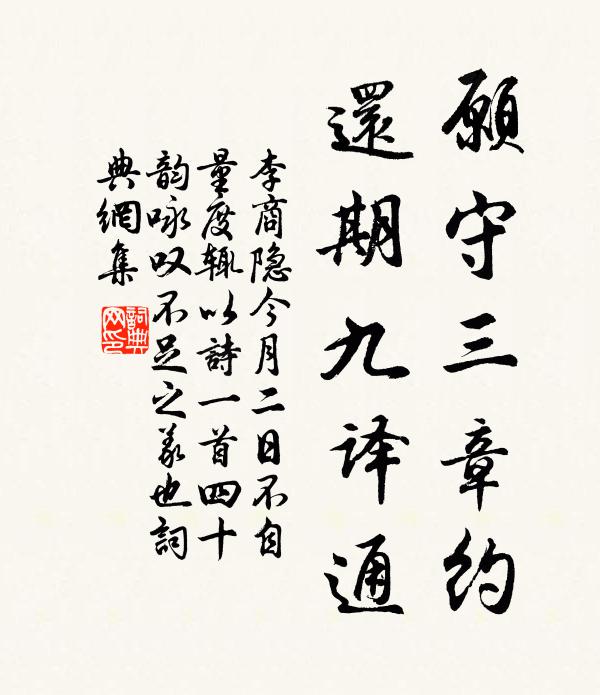 願守三章约
還期九译通
李商隐今月二日不自
量度辄以詩一首四十
韵咏叹不足之义也詞
典網集
詞典
网印